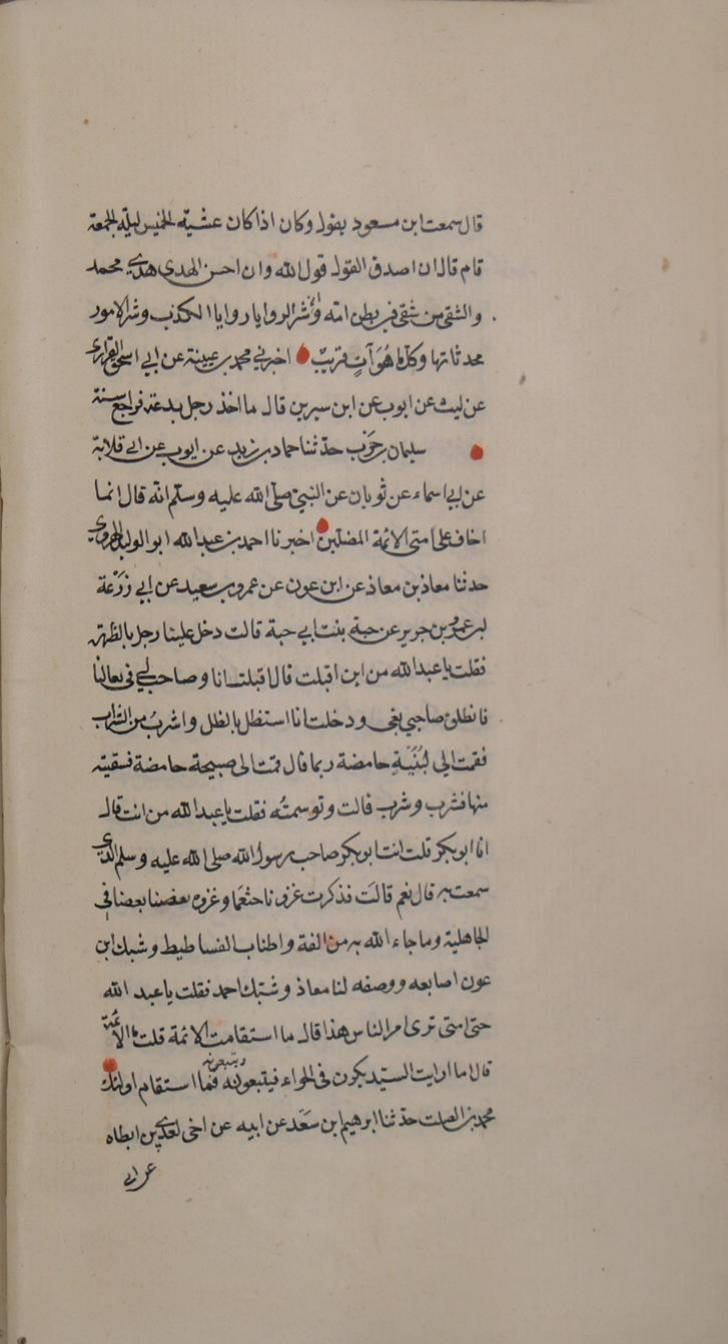 قال سمعت ابن مسعود يقول وكان اذا كان عشية الخميس ليلة الجمعة
قام قال ان اصدق القول قول الله وان احسن الهدي هدي محمد
والشقي من شقي في بطن امه وان شر الروايا روايا الكذب وشر الامور
محدثاتها وكل ما هو آت قريب اخبرني محمد بن عيينة عن ابي اسحق الفزاري
عن ليث عن ايوب عن ابن سيرين قال ما اخذ رجل ببدعة فراجع سنة
سليمان بن حرب حدثنا حماد بن زيد عن ايوب عن ابي قلابة
عن ابي اسماء عن ثوبان عن النبي صلى الله عليه وسلم انه قال انما
اخاف على امتي الائمة المضلين اخبرنا احمد بن عبد الله ابو الوليد الهروي
حدثنا معاذ بن معاذ عن ابن عون عن عمرو بن سعيد عن ابي زرعة
بن عمرو بن جرير عن حية بنت ابي حية قالت دخل علينا رجل بالظهيرة
فقلت يا عبد الله من اين اقبلت قال اقبلت انا وصاحب لي في بغا لنا
فانطلق صاحبي يبغي ودخلت انا استظل بالظل واشرب من الشراب
فقمت الى لبنية حامضة ربما قال قمت الى ضيحة حامضة فسقيته
منها فشرب وشرب قالت وتوسمته فقلت يا عبد الله من انت قال
انا ابو بكر قلت انت ابو بكر صاحب رسول الله صلى الله عليه وسلم الذي
سمعت به قال نعم قالت فذكرت غزونا خثعما وغزوة بعضنا بعضا في
الجاهلية وما جاء الله به من الفة واطناب الفساطيط وشبك ابن
عون اصابعه ووصفه لنا معاذ وشبك احمد فقلت يا عبد الله
حتى متى ترى امر الناس هذا قال ما استقامت الائمة قلت ما الائمة
قال اما رايت السيد يكون في الحواء فيتبعونه ويتبعونه فما استقام اولئك
محمد بن الصلت حدثنا ابرهيم ابن سعد عن ابيه عن اخي لعدي بن ارطاه
عن ابي